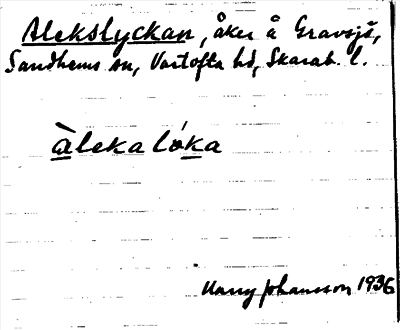 Alekslyckan, åker å Gravsjš,
Sandhems sn, Vartofta hd, Skarab. l.
àleka lóka
Harry Johansson 1936